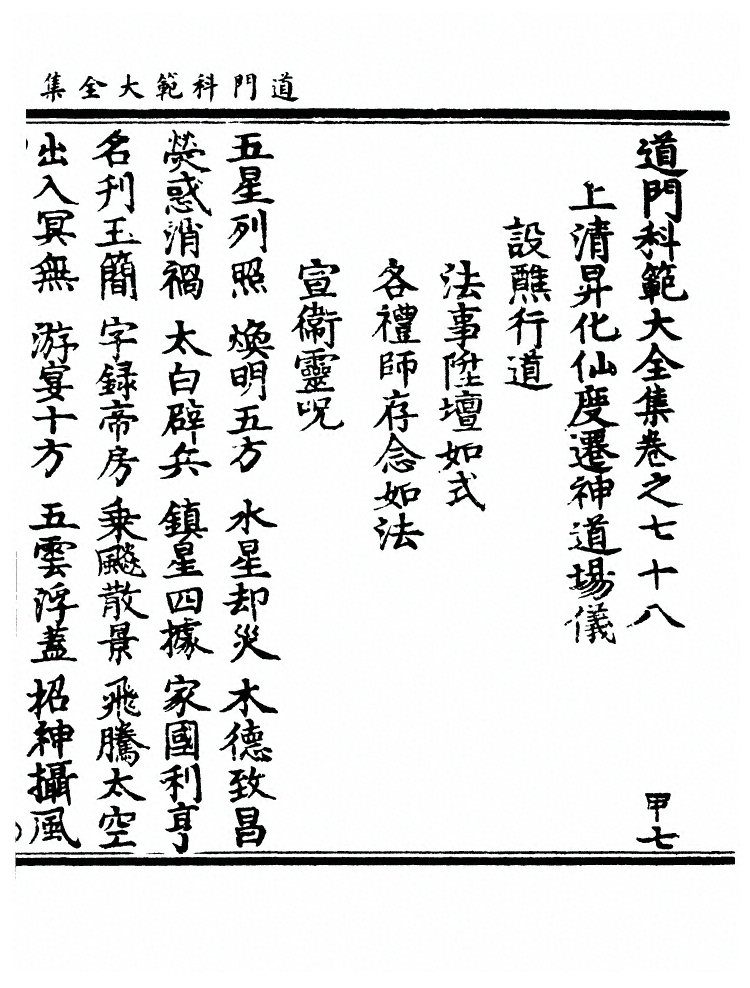 道門科範大全集
道門科範大全集卷之七十八 甲七
上清昇化仙度遷神道場儀
設醮行道
法事陞壇如式
各禮師存念如法
宣衞靈呪
五星列照 煥明五方 水星却災 木德致昌
熒惑消禍 太白辟兵 鎮星四據 家國利亨
名刋玉簡 字録帝房 乗飈散景 飛騰太空
出入冥無 游宴十方 五雲浮蓋 招神攝風